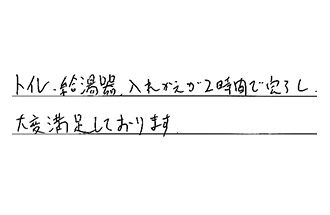 トイレ・給湯器、入れかえが2時間で完了し、
大変満足しております。